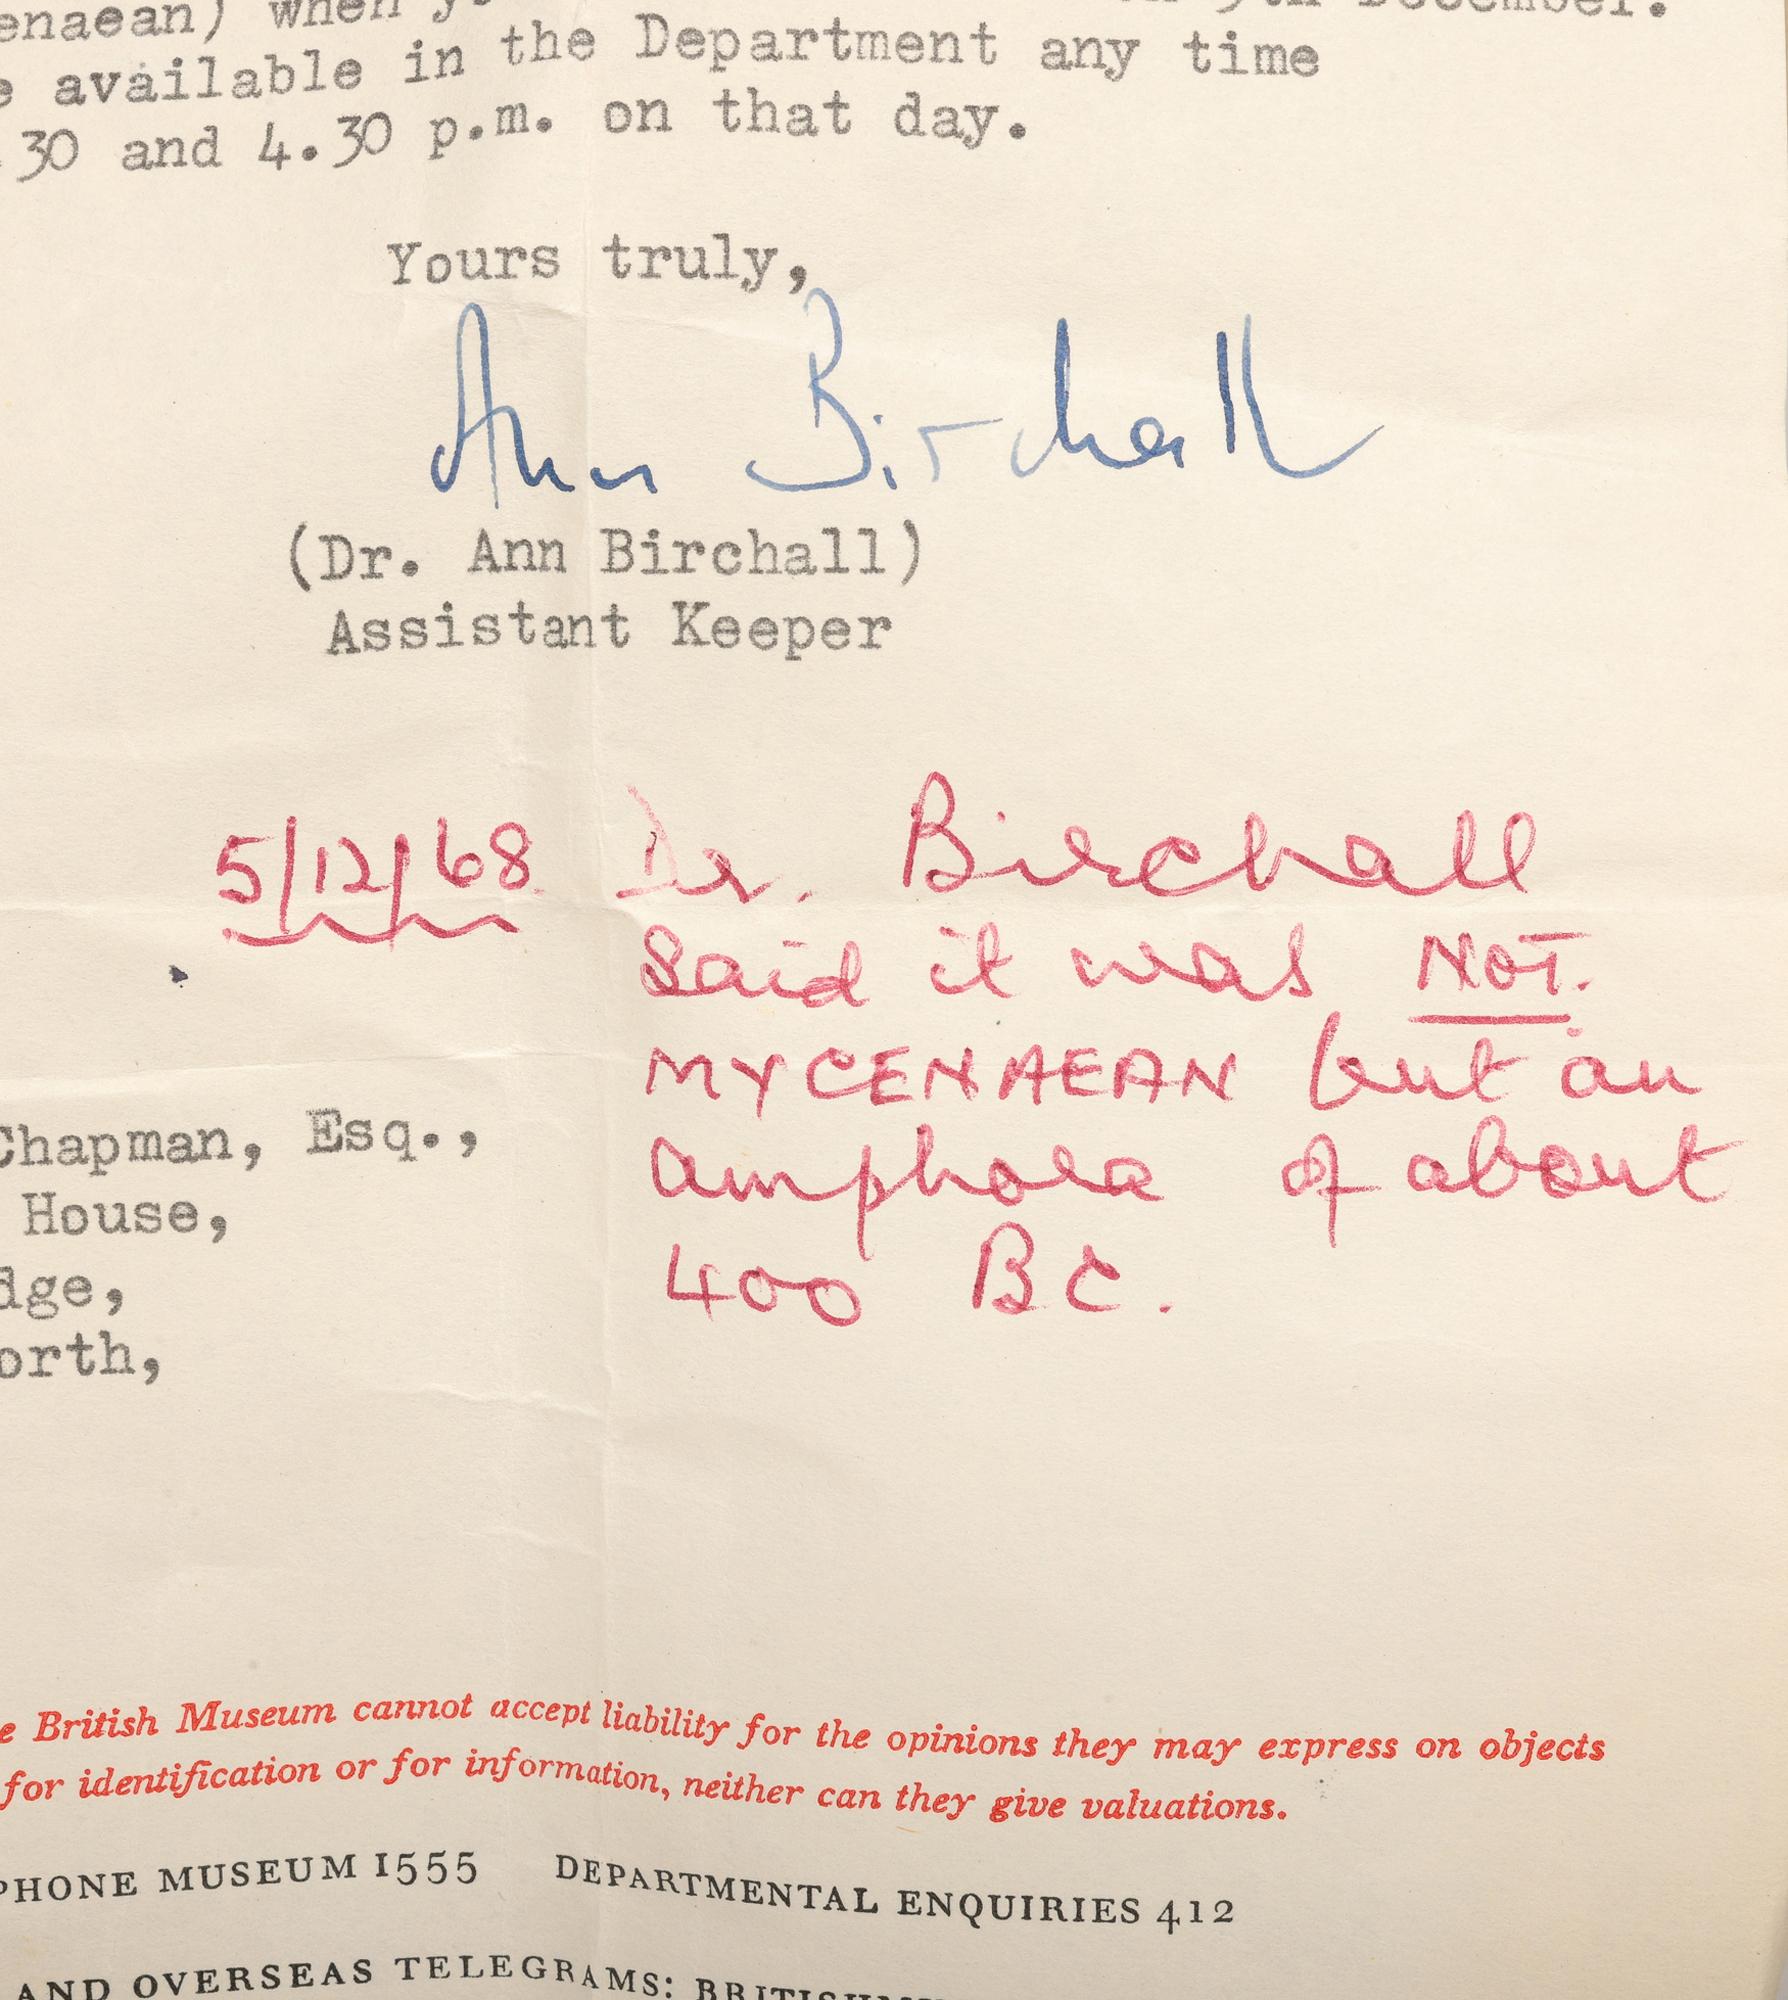 enaean) when December.
available in the Department any time
30 and 4.30 p.m. on that day.
Yours truly,
Ann Birchall
(Dr. Ann Birchall)
Assistant Keeper
5/12/68 Dr. Birchall
Said it was NOT.
MYCENAEAN but an
amphora of about
400 BC.
Chapman, Esq.,
House,
dge,
orth,
e British Museum cannot accept liability for the opinions they may express on objects
for identification or for information, neither can they give valuations.
PHONE MUSEUM 1555 DEPARTMENTAL ENQUIRIES 412
AND OVERSEAS TELEGRAMS: